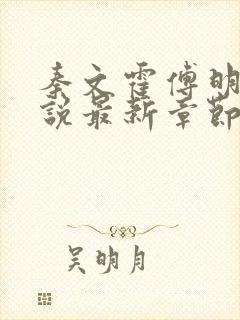 秦文霍傅明
說最新章節
吴明月